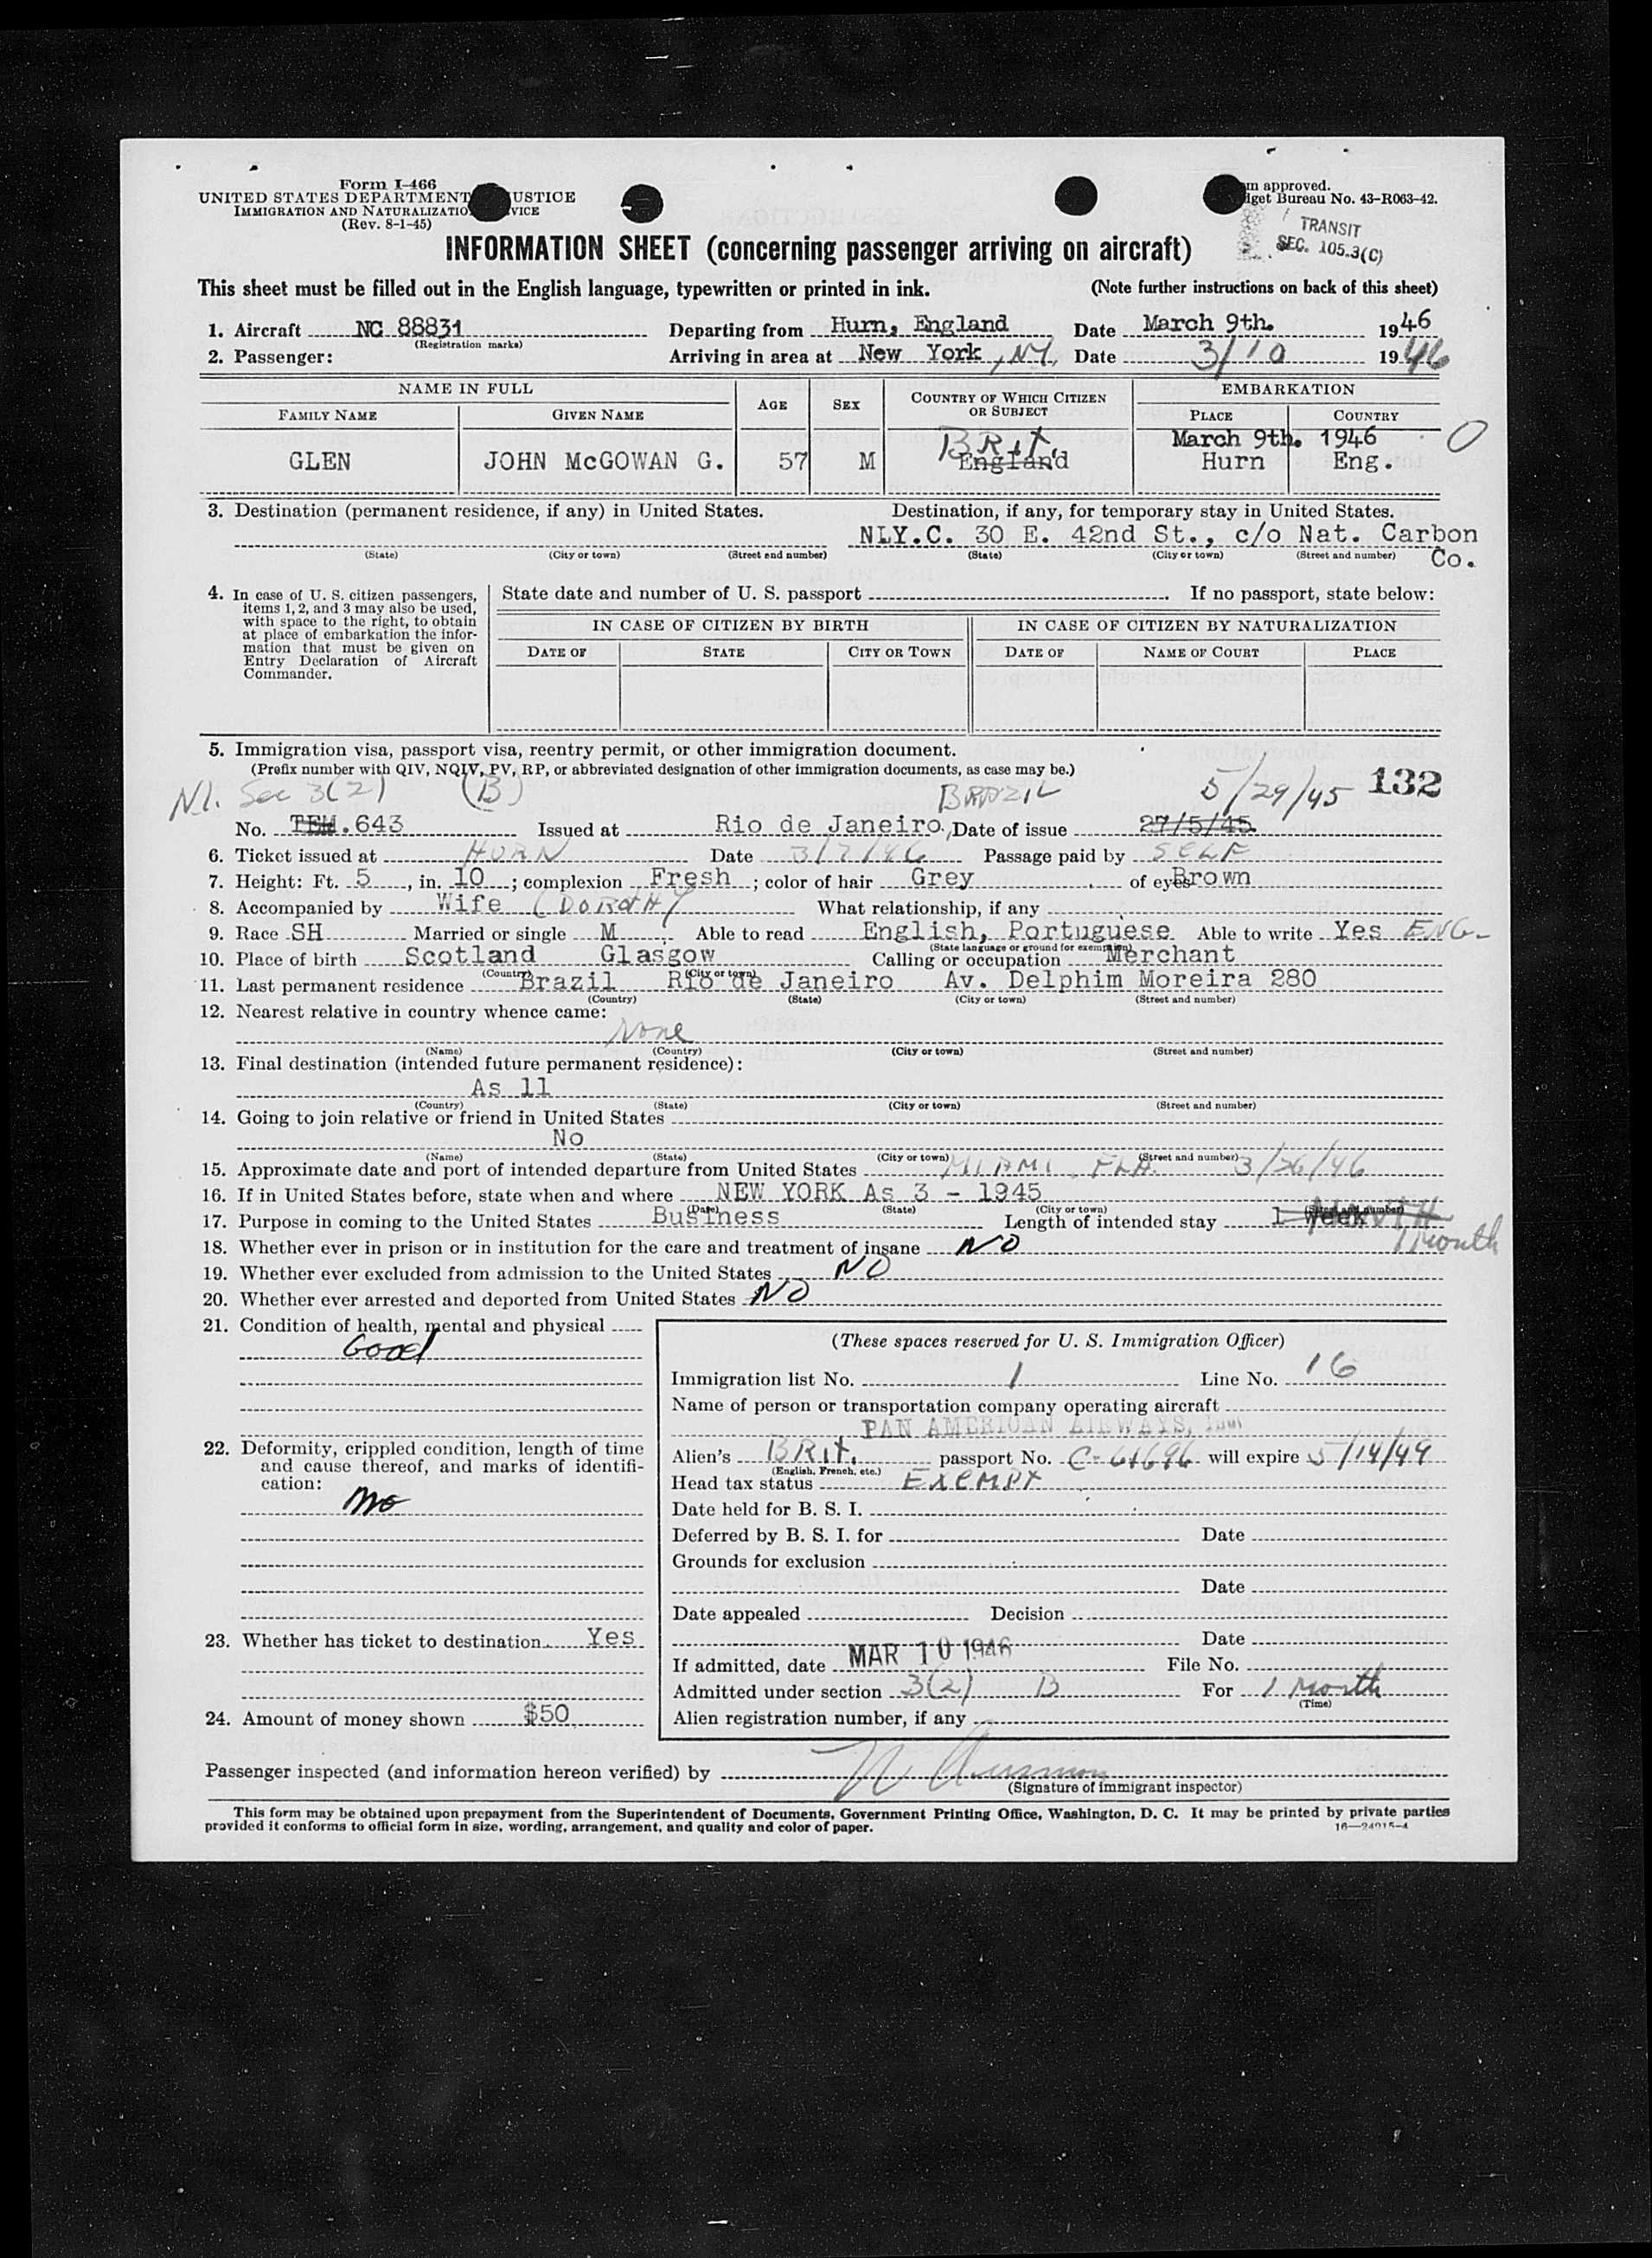 Form I-466
UNITED STATES DEPARTMENT USTICE
IMMIGRATION AND NATURALIZATIO VICE
(Rev. 8-1-45)
m approved.
dget Bureau No. 43-R063-42.
TRANSIT
SEC. 105.3(C)
INFORMATION SHEET (concerning passenger arriving on aircraft)
This sheet must be filled out in the English language, typewritten or printed in ink. (Note further instructions on back of this sheet)
1. Aircraft NC 88831 Departing from Hurn, England Date March 9th. 1946
(Registration marks)
2. Passenger: Arriving in area at New York, NY, Date 3/10 1946
NAME IN FULL AGE SEX COUNTRY OF WHICH CITIZEN OR SUBJECT EMBARKATION
FAMILY NAME GIVEN NAME PLACE COUNTRY
BRIT. March 9th. 1946 O
GLEN JOHN McGOWAN G. 57 M England Hurn Eng.
3. Destination (permanent residence, if any) in United States. Destination, if any, for temporary stay in United States.
NLY.C. 30 E. 42nd St., c/o Nat. Carbon Co.
(State) (City or town) (Street and number) (State) (City or town) (Street and number)
4. In case of U. S. citizen passengers, items 1, 2, and 3 may also be used, with space to the right, to obtain at place of embarkation the information that must be given on Entry Declaration of Aircraft Commander.
State date and number of U. S. passport . If no passport, state below:
IN CASE OF CITIZEN BY BIRTH IN CASE OF CITIZEN BY NATURALIZATION
DATE OF STATE CITY OR TOWN DATE OF NAME OF COURT PLACE
5. Immigration visa, passport visa, reentry permit, or other immigration document.
(Prefix number with QIV, NQIV, PV, RP, or abbreviated designation of other immigration documents, as case may be.)
N.I. Sec 3(2) (B) BRAZIL 5/29/45 132
No. TEM.643 Issued at Rio de Janeiro, Date of issue 27/5/45
6. Ticket issued at HURN Date 3/7/46 Passage paid by SELF
7. Height: Ft. 5, in. 10; complexion Fresh; color of hair Grey of eyes Brown
8. Accompanied by Wife (DOROTHY What relationship, if any
9. Race SH Married or single M Able to read English, Portuguese Able to write Yes ENG.
(State language or ground for exemption)
10. Place of birth Scotland Glasgow Calling or occupation Merchant
(Country) (City or town)
11. Last permanent residence Brazil Rio de Janeiro Av. Delphim Moreira 280
(Country) (State) (City or town) (Street and number)
12. Nearest relative in country whence came:
None
(Name) (Country) (City or town) (Street and number)
13. Final destination (intended future permanent residence):
As 11
(Country) (State) (City or town) (Street and number)
14. Going to join relative or friend in United States
No
(Name) (State) (City or town) (Street and number)
15. Approximate date and port of intended departure from United States MIAMI, FLA. 3/26/46
16. If in United States before, state when and where NEW YORK As 3 - 1945
(Date) (State) (City or town) (Street and number)
17. Purpose in coming to the United States Business Length of intended stay 1 week
1 Month
18. Whether ever in prison or in institution for the care and treatment of insane NO
19. Whether ever excluded from admission to the United States NO
20. Whether ever arrested and deported from United States NO
21. Condition of health, mental and physical
Good
22. Deformity, crippled condition, length of time and cause thereof, and marks of identification:
No
23. Whether has ticket to destination Yes
24. Amount of money shown $50
(These spaces reserved for U. S. Immigration Officer)
Immigration list No. 1 Line No. 16
Name of person or transportation company operating aircraft
PAN AMERICAN AIRWAYS,
Alien's BRIT. passport No. C-61696 will expire 5/14/49
(English, French, etc.)
Head tax status EXEMPT
Date held for B. S. I.
Deferred by B. S. I. for Date
Grounds for exclusion
Date
Date appealed Decision
Date
If admitted, date MAR 10 1946 File No.
Admitted under section 3(2) B For 1 Month
(Time)
Alien registration number, if any
Passenger inspected (and information hereon verified) by
(Signature of immigrant inspector)
This form may be obtained upon prepayment from the Superintendent of Documents, Government Printing Office, Washington, D. C. It may be printed by private parties
provided it conforms to official form in size, wording, arrangement, and quality and color of paper.
16—24915-4